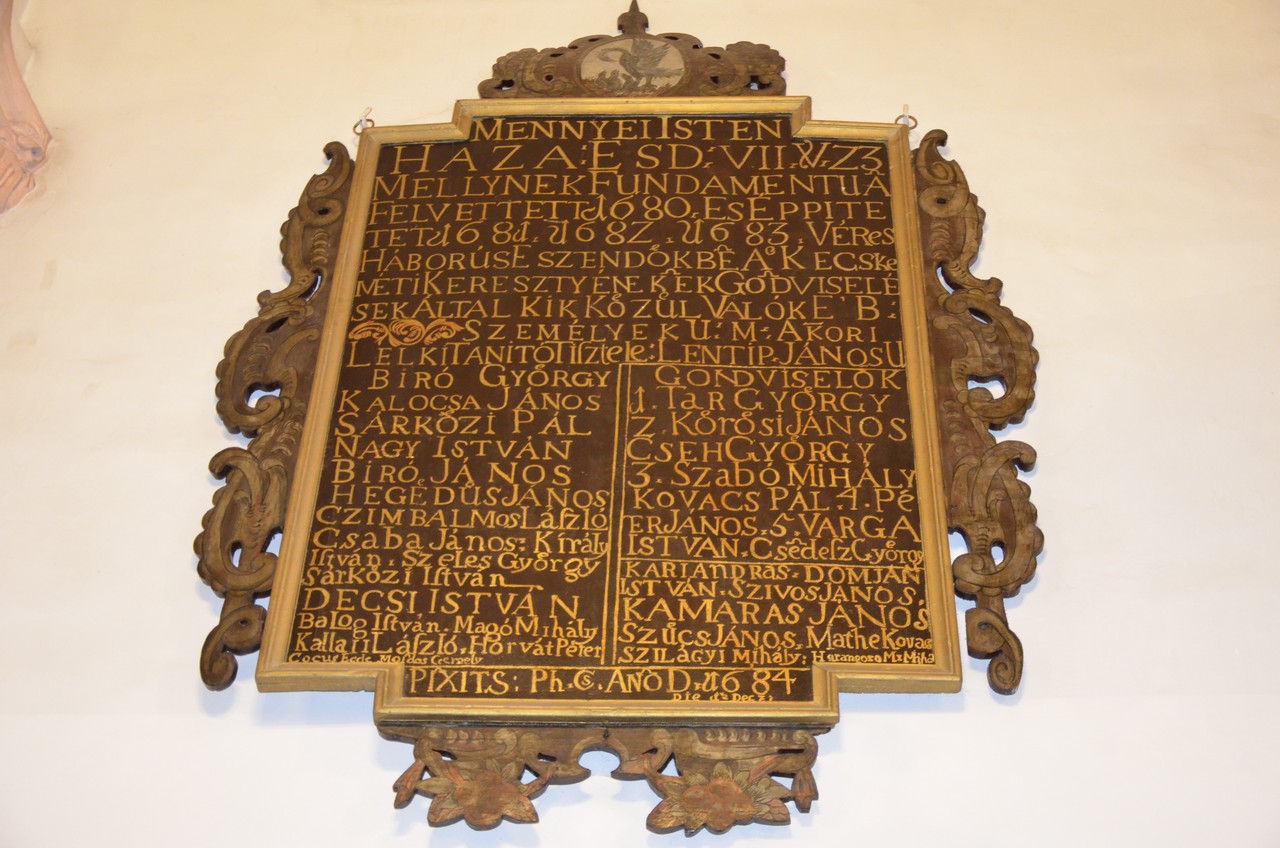 MENNYEI ISTEN
HAZA: ESD: VII. V. Z3
MELLYNEK FUNDAMENTUÂ
FELVETTETT 1680, ES ÉPPITE
TET 1681. 1682. 1683. VÉRes
HÁBORÚS ESZTENDŐKBÊ A KECSKe
METI KERESZTYÉNEKEK GONDVISELÉ
SEK ÁLTAL KIK KŐZŰL VALÓK E' B:
SZEMÉLYEK U: M: AKORI
LELKI TANITÓ TISZTELE: LENTI P. JÁNOS U
BIRÓ GYŐRGY
KALOCSA JÁNOS
SÁRKŐZI PÁL
NAGY ISTVÁN
BIRÓ JÁNOS
HEGEDŰS JÁNOS
CZIMBALMos László
Csaba János: Király
István. Szeles GyőRgy
Sárkőzi István
DECSI ISTVÁN
BaLog István. Magó Mihály
Kallai László. Horvát Péter
GONDVISELŐK
1. TAR GYŐRGY
2. KŐRŐSI JÁNOS
CSEH GYŐRGY
3. SZABÓ MIHÁLY
KOVACS PÁL. 4. Pé
ERJÁNOS. 5. VARGA
ISTVAN. CSêdeSz Győrgy
KARI ANDRAS. DOMJAN
ISTVÁN. SZIVOS JÁNOS
KAMARAS JÁNOS
SZŰCS JÁNOS. Mathe Kovacs
SZILÁGYI Mihály: Harangozo M: Miha
PIXIT S: Ph. Cs. ANÖ D. 1684